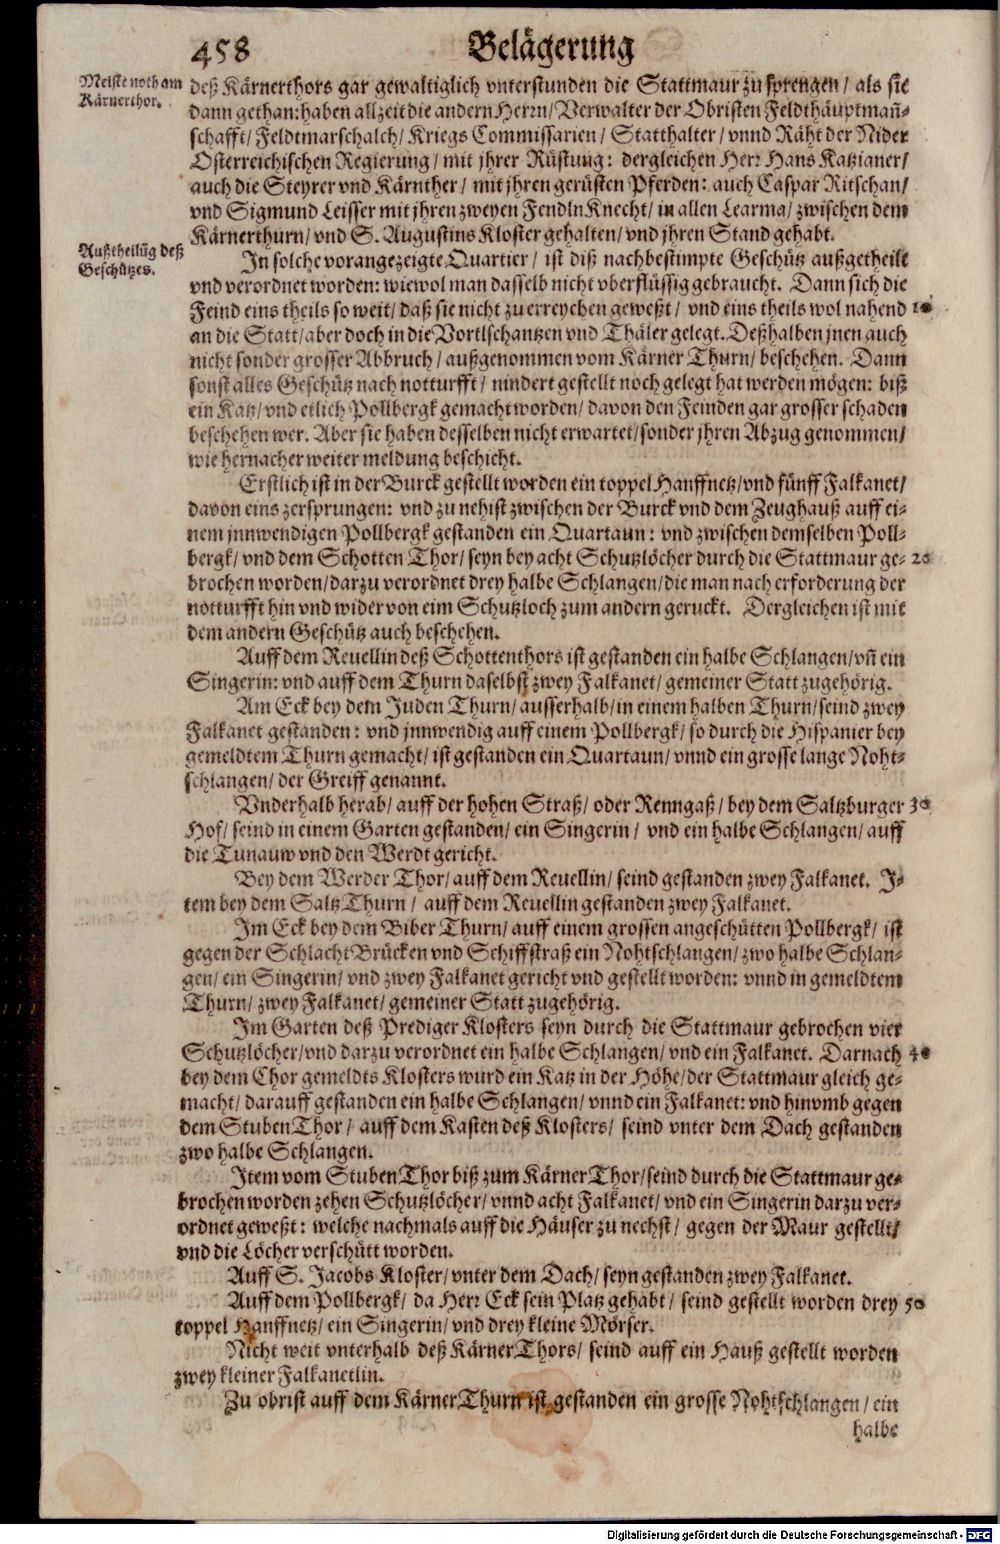 458 Belägerung
Meiste noth am
Kärnerthor.
deß Kärnerthors gar gewaltiglich vnterstunden die Stattmaur zu sprengen / als sie
dann gethan: haben allzeit die andern Herrn / Verwalter der Obristen Feldthäuptmañ-
schafft / Feldtmarschalch / Kriegs Commissarien / Statthalter / vnnd Räht der Nider
Osterreichischen Regierung / mit jhrer Rüstung: dergleichen Herr Hans Katzianer /
auch die Steyrer vnd Kärnther / mit jhren gerüsten Pferden: auch Caspar Ritschan /
vnd Sigmund Leisser mit jhren zweyen Fendln Knecht / in allen Learma / zwischen dem
Kärnerthurn / vnd S. Augustins Kloster gehalten / vnd jhren Stand gehabt.
Außtheilũg deß
Geschützes.
In solche vorangezeigte Quartier / ist diß nachbestimpte Geschütz außgetheilt
vnd verordnet worden: wiewol man dasselb nicht vberflüssig gebraucht. Dann sich die
Feind eins theils so weit / daß sie nicht zu erreychen geweßt / vnd eins theils wol nahend 10
an die Statt / aber doch in die Vortlschantzen vnd Thäler gelegt. Deßhalben jnen auch
nicht sonder grosser Abbruch / außgenommen vom Kärner Thurn / beschehen. Dann
sonst alles Geschütz nach notturfft / nindert gestellt noch gelegt hat werden mögen: biß
ein Katz / vnd etlich Pollbergk gemacht worden / davon den Feinden gar grosser schaden
beschehen wer. Aber sie haben desselben nicht erwartet / sonder jhren Abzug genommen /
wie hernacher weiter meldung beschicht.
Erstlich ist in der Burck gestellt worden ein toppel Hanffnetz / vnd fünff Falkanet /
davon eins zersprungen: vnd zu nehist zwischen der Burck vnd dem Zeughauß auff ei-
nem jnnwendigen Pollbergk gestanden ein Quartaun: vnd zwischen demselben Poll-
bergk / vnd dem Schotten Thor / seyn bey acht Schutzlöcher durch die Stattmaur ge- 20
brochen worden / darzu verordnet drey halbe Schlangen / die man nach erforderung der
notturfft hin vnd wider von eim Schutzloch zum andern geruckt. Dergleichen ist mit
dem andern Geschütz auch beschehen.
Auff dem Reuellin deß Schottenthors ist gestanden ein halbe Schlangen / vñ ein
Singerin: vnd auff dem Thurn daselbst zwey Falkanet / gemeiner Statt zugehörig.
Am Eck bey dem Juden Thurn / ausserhalb / in einem halben Thurn / seind zwey
Falkanet gestanden: vnd jnnwendig auff einem Pollbergk / so durch die Hispanier bey
gemeldtem Thurn gemacht / ist gestanden ein Quartaun / vnnd ein grosse lange Noht-
schlangen / der Greiff genannt.
Vnderhalb herab / auff der hohen Straß / oder Renngaß / bey dem Saltzburger 30
Hof / seind in einem Garten gestanden / ein Singerin / vnd ein halbe Schlangen / auff
die Tunauw vnd den Werdt gericht.
Bey dem Werder Thor / auff dem Reuellin / seind gestanden zwey Falkanet. J-
tem bey dem Saltz Thurn / auff dem Reuellin gestanden zwey Falkanet.
Im Eck bey dem Biber Thurn / auff einem grossen angeschütten Pollbergk / ist
gegen der Schlacht Brücken vnd Schiffstraß ein Nohtschlangen / zwo halbe Schlan-
gen / ein Singerin / vnd zwey Falkanet gericht vnd gestellt worden: vnnd in gemeldtem
Thurn / zwey Falkanet / gemeiner Statt zugehörig.
Im Garten deß Prediger Klosters seyn durch die Stattmaur gebrochen vier
Schutzlöcher / vnd darzu verordnet ein halbe Schlangen / vnd ein Falkanet. Darnach 40
bey dem Chor gemeldts Klosters wurd ein Katz in der Höhe / der Stattmaur gleich ge-
macht / darauff gestanden ein halbe Schlangen / vnnd ein Falkanet: vnd hinvmb gegen
dem Stuben Thor / auff dem Kasten deß Klosters / seind vnter dem Dach gestanden
zwo halbe Schlangen.
Item vom Stuben Thor biß zum Kärner Thor / seind durch die Stattmaur ge-
brochen worden zehen Schutzlöcher / vnnd acht Falkanet / vnd ein Singerin darzu ver-
ordnet geweßt: welche nachmals auff die Häuser zu nechst / gegen der Maur gestellt /
vnd die Löcher verschütt worden.
Auff S. Jacobs Kloster / vnter dem Dach / seyn gestanden zwey Falkanet.
Auff dem Pollbergk / da Herr Eck sein Platz gehabt / seind gestellt worden drey 50
toppel Hanffnetz / ein Singerin / vnd drey kleine Mörser.
Nicht weit vnterhalb deß Kärner Thors / seind auff ein Hauß gestellt worden
zwey kleiner Falkanetlin.
Zu obrist auff dem Kärner Thurn ist gestanden ein grosse Nohtschlangen / ein
halbe
Digitalisierung gefördert durch die Deutsche Forschungsgemeinschaft - DFG